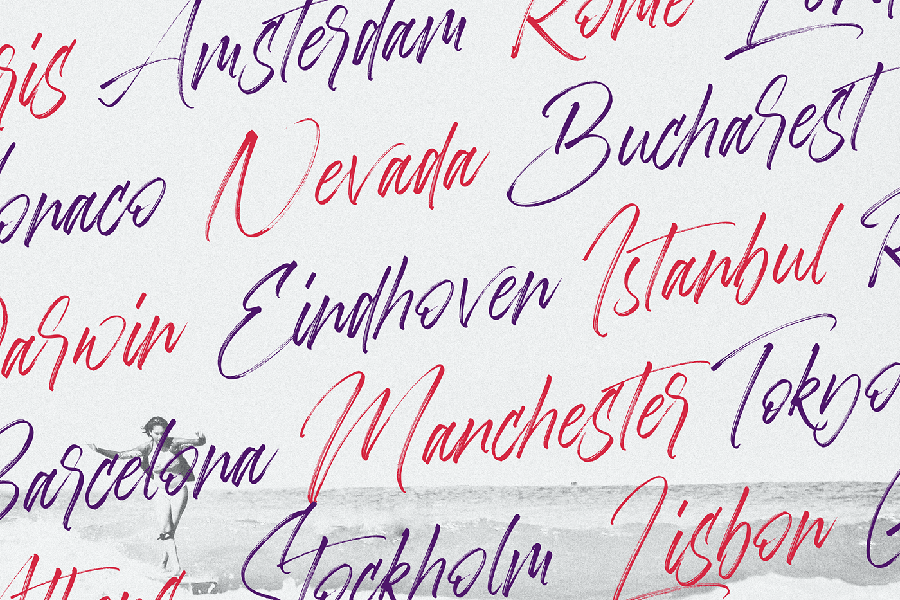 ris Amsterdam Rome Lond
onaco Nevada Bucharest
Darwin Eindhoven Istanbul R
Barcelona Manchester Tokyo
Athens Stockholm Lisbon G